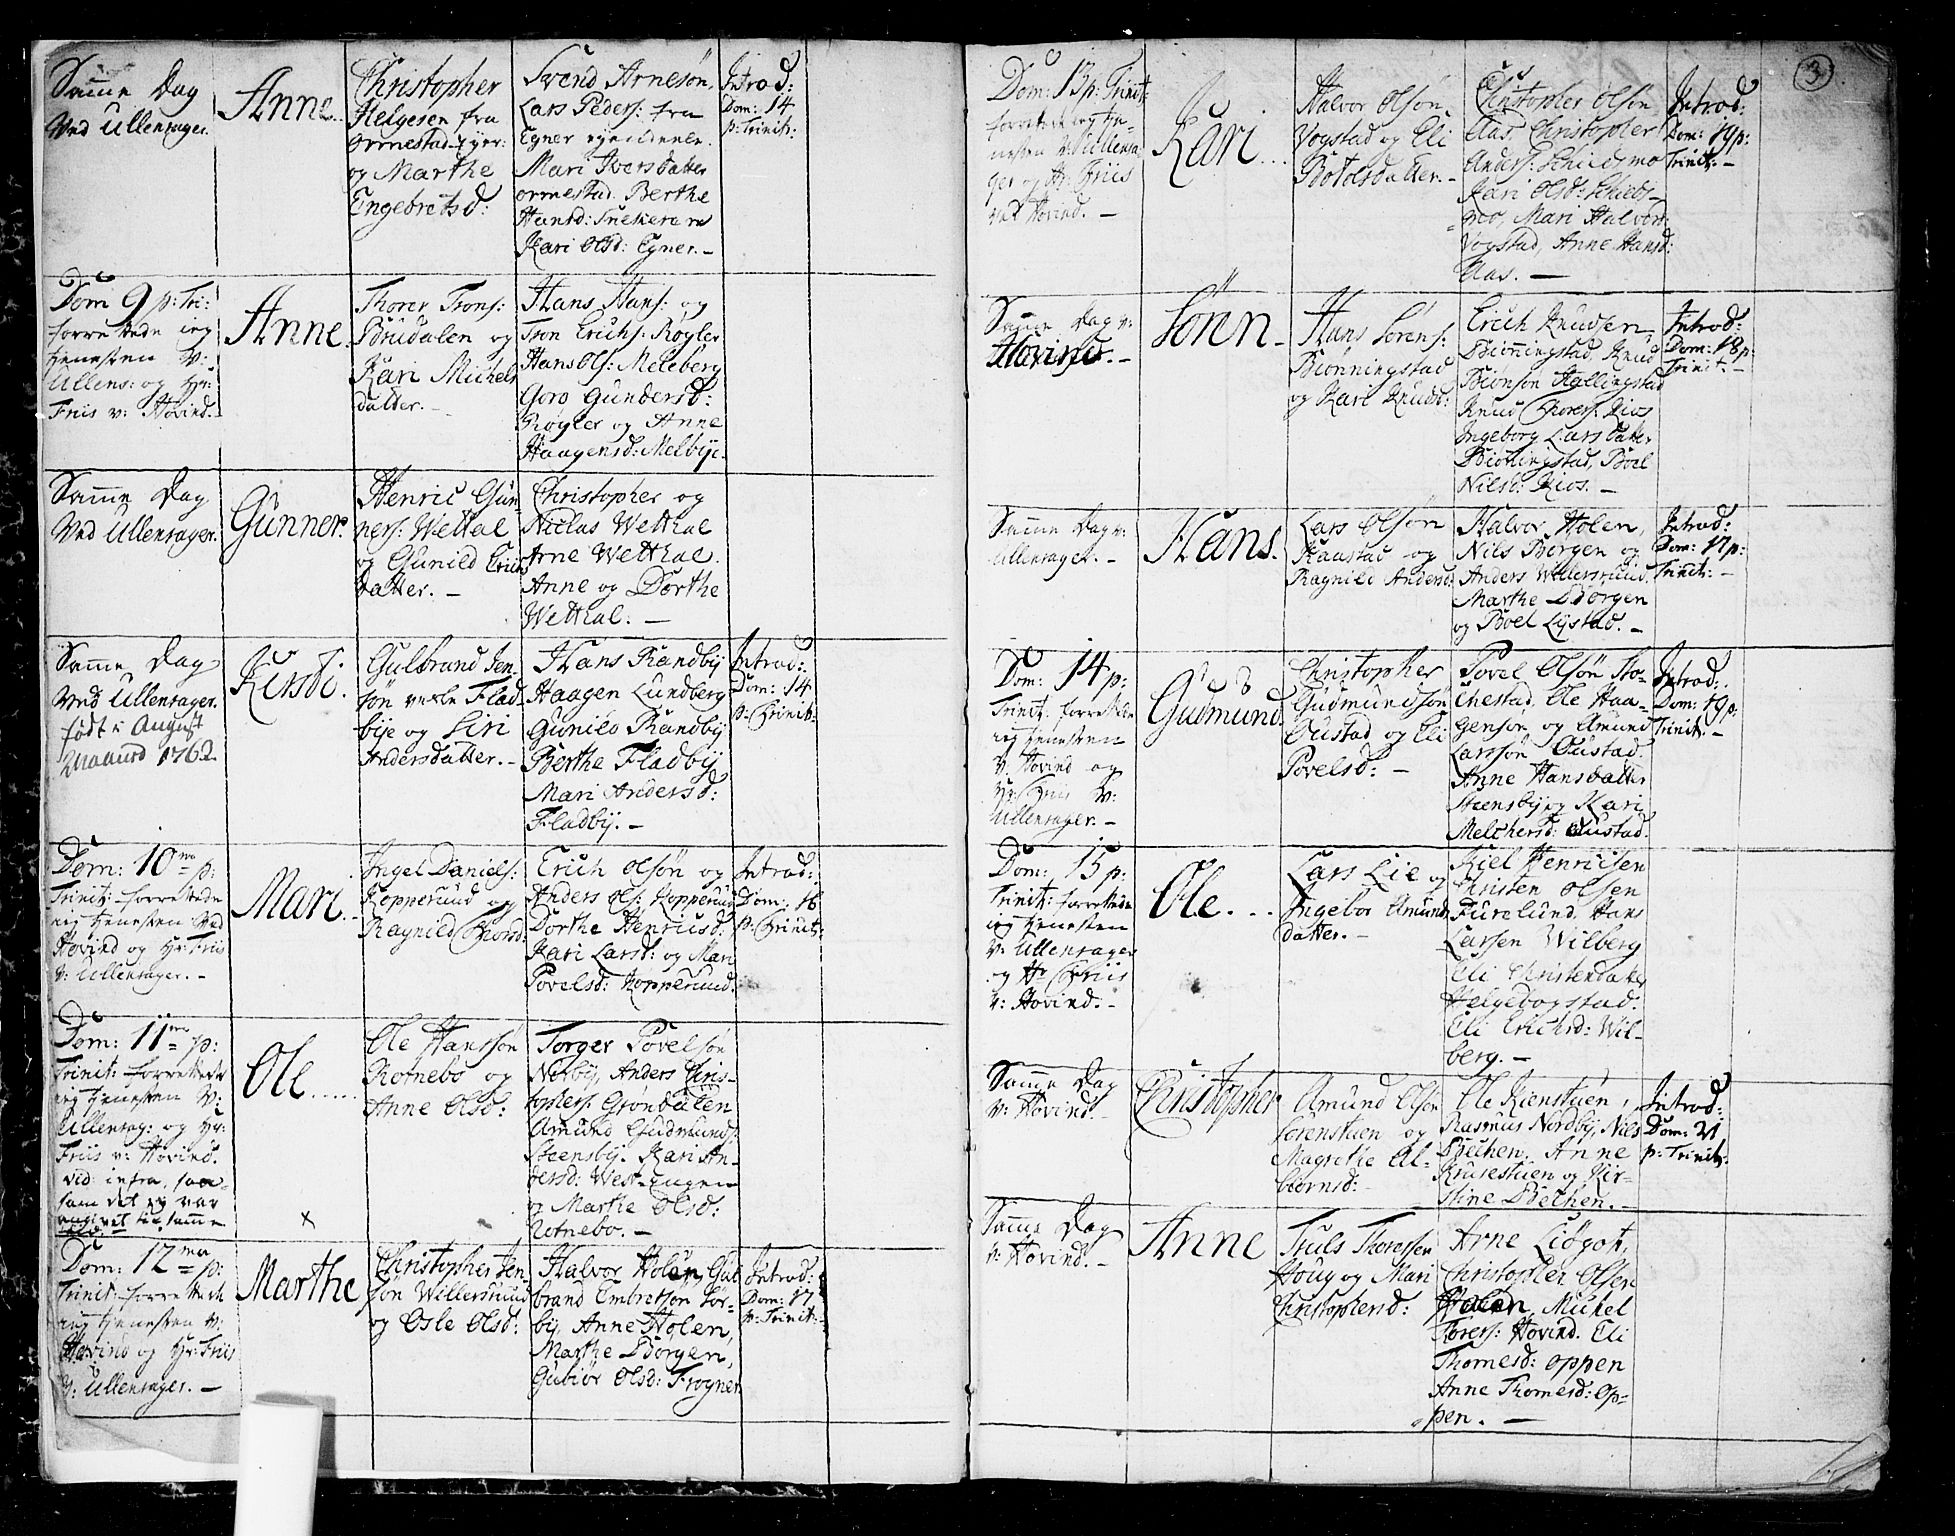 Samme Dag
Ved Ullensager.
Anne.
Christopher
Helgesen fra
ormestad
og Marthe
Engebretsd:
Svend Arnesön,
Lars Peders: fra
Egner
Mari Iversdatter
ormestad. Berthe
Hansd:
Kari Olsd: Egner.
Introd:
Dom: 14
p: Trinit:
Dom 9 p: Tri:
forrettede ieg
tienesten V:
Ullens: og Hr:
Friis v: Hovind.
Anne.
Thorer Trons:
Brudalen og
Kari Michels
datter. –
Hans Hans: og
Tron Erichs: Røgler
Hans Ols: Meleberg
Goro Gundersd:
Røgler og Anne
Haagensd: Melbÿe.
Samme Dag
Ved Ullensager.
Gunner.
Henric Gun
ners: Wettal
og Gunild Erichs
datter. –
Christopher og
Niclas Wetthal
Arne Wetthal.
Anne og Dorthe
Wetthal. –
Samme Dag
Ved Ullensager.
født i August
Maaned 1762
Kirsti.
Gulbrand Jen
søn Flad
bÿe og Siri
Andersdatter. –
Hans Randbÿ
Haagen Lundberg
Gunild Randbÿ
Berthe Fladbÿ
Mari Andersd:
Fladbÿ. –
Introd:
Dom: 14
p: Trinit:
Dom: 10 ma p:
Trinit: forrettede
ieg tienesten Ved
Hovind og Hr: Friis
V: Ullensager. –
Mari.
Ingel Daniels:
Kopperud og
Ragnild Thorsd:
Erich olsøn og
Anders Ols: Kopperud
Dorthe Henricsd.
Kari Larsd: og Mari
Povelsd: Kopperud.
Introd:
Dom: 16
p: Trinit:
Dom: 11 ma p:
Trinit: forrettede
ieg tienesten V:
Ullensag: og Hr:
Friis v: Hovind.
vid: infra,
som det og var
angivet til samme
Ole......
x
Ole Hanssøn
Rotnebo og
Anne Olsd:
Torger Povelsøn
Norbÿ, Anders Chris-
tophers: Grøndalen
Amund Gudmunds:
Steensbÿ. Kari An-
dersd: West-
og Marthe Olsd:
Rotnebo. –
Dom: 12 ma p:
Trinit: forrettede
ieg tienesten v:
Hovind og Hr: Friis
V: Ullensager. –
Marthe
Christopher Jen-
søn Willersruud
og Osle Olsd:
Halvor Holen, Gul
brand Embretsøn Sør-
bÿ, Anne Holen,
Marthe Borgen,
Gubiør Olsd: Frogner
Introd:
Dom: 17
p: Trinit:
3
Dom: 13 p: Trinit:
forrettede ieg tie-
nesten v: Ullensa-
ger og Hr. Friis
ved Hovind. –
Kari...
Halvor Olsøn
Vogstad og Eli
Botolsdatter. –
Christopher Olsøn
Aas Christopher
Anders: Schiedsmo
Kari Olsd: Schieds-
mo, Mari Halvors:
Vogstad, Anne Hansd:
Aas. –
Introd:
Dom: 19 p:
Trinit: –
Samme Dag v:
Hovind. –
Søren –
Hans Sørens:
Biønningstad
og Kari Knuds:
Erich Knudsen
Biønningstad, Knud
Biønsøn Hallingstad
Knud Thores: Kios
Ingeborg Larsdatter
Biønningstad, Boel
Nilsd: Kios. –
Introd:
Dom: 18 p:
Trinit: –
Samme Dag v:
Ullensager. –
Hans.
Lars Olsøn
Raustad og
Ragnild Andersd:
Halvor Holen,
Nils Borgen og
Anders Willersruud.
Marthe Borgen
og Boel Lÿstad. –
Introd:
Dom: 17 p:
Trinit: –
Dom: 14 p:
Trinit: forrettede
ieg tienesten
V. Hovind og
Hr: Friis V:
Ullensager. –
Gudmund.
Christopher
Gudmundsøn
Oustad og Eli
Povelsd: –
Povel Olsøn Sto-
chestad. Ole Haa-
gensøn og Amund
Larssøn Oustad.
Anne Hansdatter
Steensbÿ og Kari
Melchersd: Oustad.
Introd:
Dom: 19 p:
Trinit: –
Dom: 15 p:
Trinit: forrettede
ieg tienesten
V: Ullensager
og Hr Friis
v: Hovind. –
Ole...
Lars Lie og
Ingebor Amunds
datter. –
Kiel Henricsen
Christen Olsen
Furelund, Hans
Larsen Wilberg
Eli Christendatter
Helgebogstad.
Eli Erichsd: Wil-
berg. –
Samme Dag
V: Hovind. –
Christopher
Amund Olsøn
Sørenstuen og
Magrethe Al-
biørnsd:
Ole Kienstuen,
Rasmus Nordbÿ, Nils
Bechen. Anne
Krusestuen og Kir-
stine Bechen. –
Introd:
Dom: 21
p: Trinit:
Samme Dag
v: Hovind. –
Anne
Truls Thoressen
Houg og Mari
Christophersd:
Arne Liøgot,
Christopher Olsen
Holen, Michel
Tores: Hovind. Eli
Thomesd: oppen
Anne Thomesd: Op-
pen. –